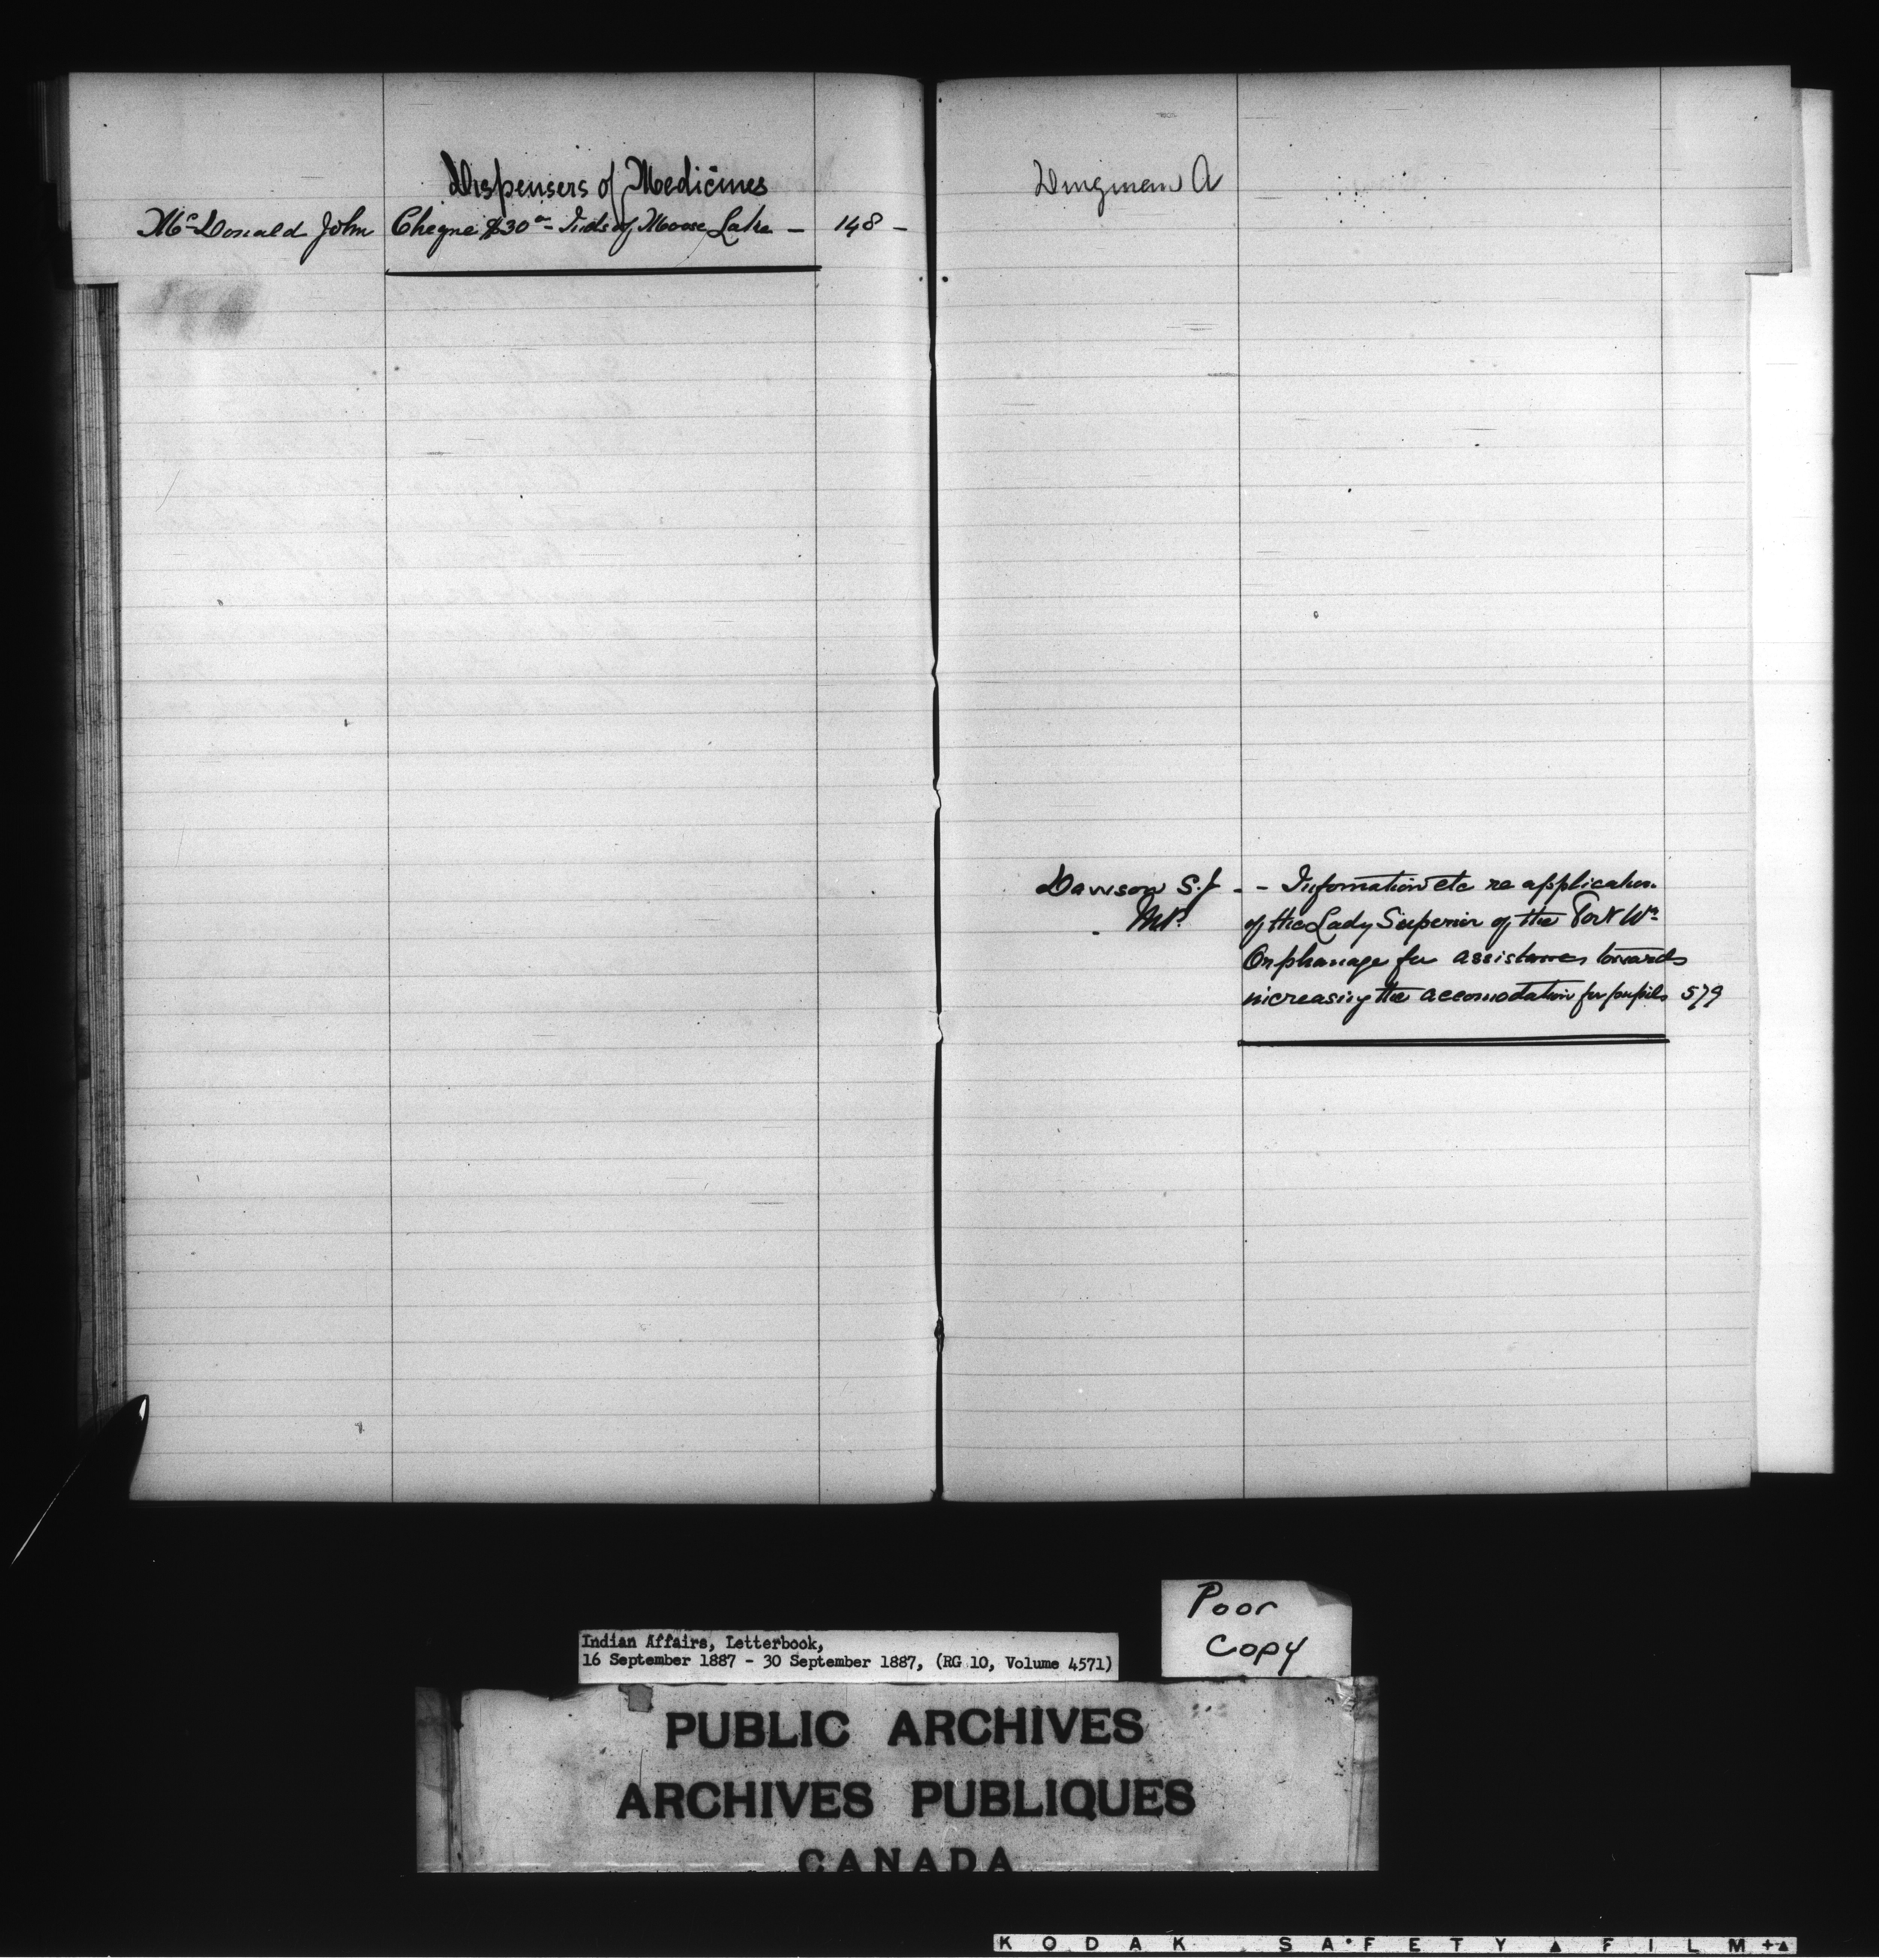 Dispensers of Medicines
McDonald John Cheque $30 00 - Inds of Moose Lake - 148 -
Dingman A
Dawson S.J - - Information etc re application
MP. of the Lady Superior of the Fort Wm
Orphanage for assistance towards
increasing the accomodation for pupils 579
Poor
Copy
Indian Affairs, Letterbook,
16 September 1887 - 30 September 1887, (RG 10, Volume 4571)
PUBLIC ARCHIVES
ARCHIVES PUBLIQUES
CANADA
KODAK SAFETY FILM